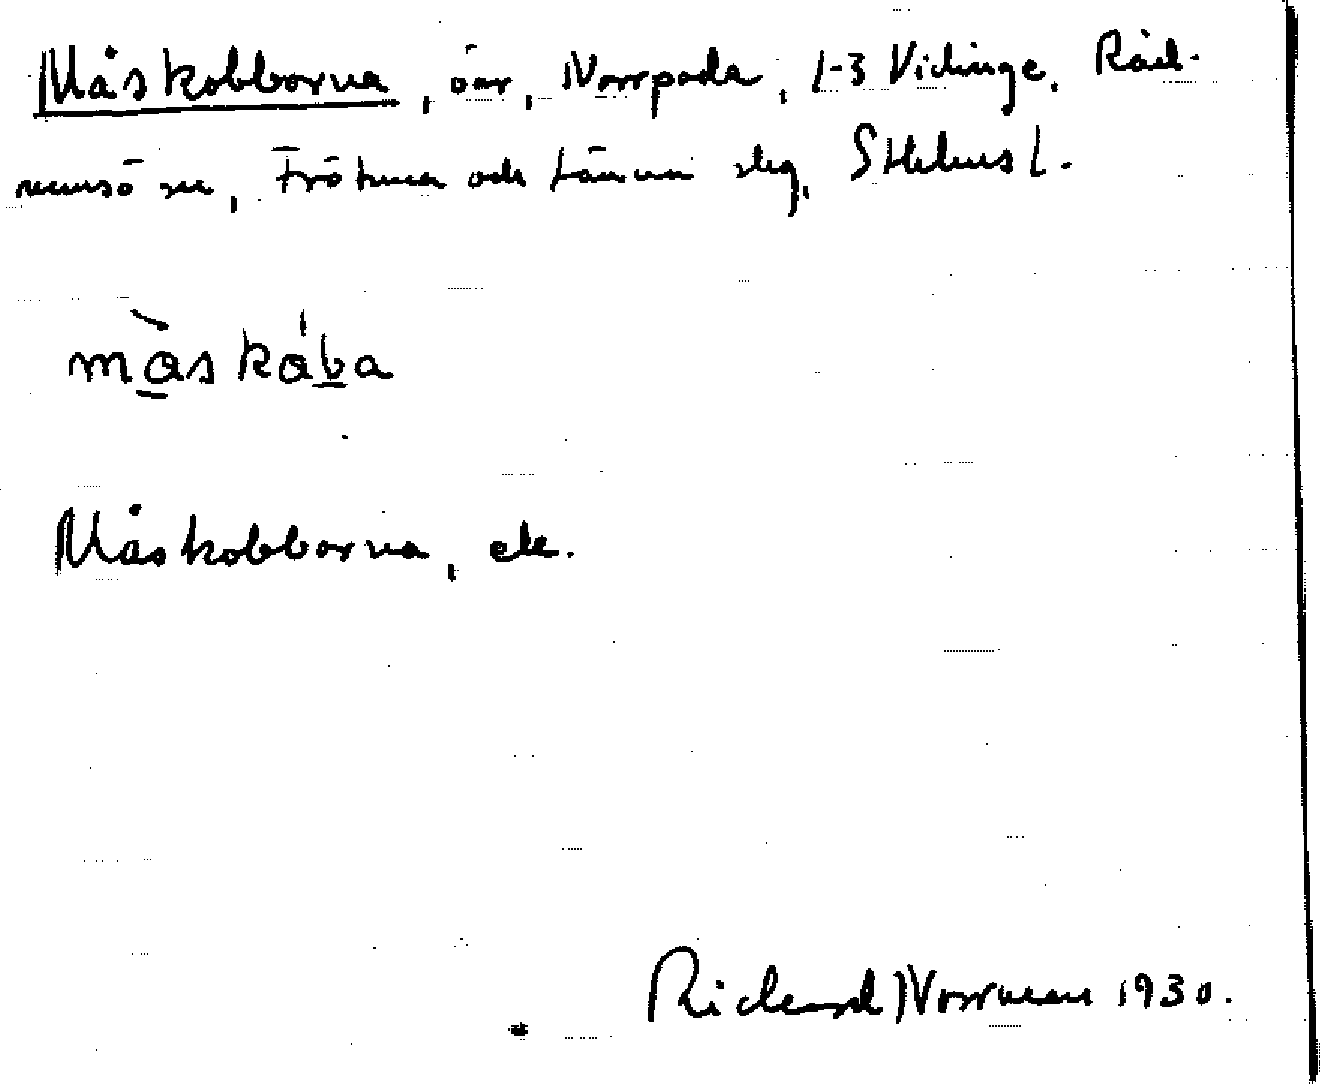 Måskobborna, öar, Norrpada, 1-3 Vidinge, Råd-
mansö sn, Frötuna och Länna slg, Sthlms l.
måskåba
Måskobborna, ek.
Rickard Norrman 1930.